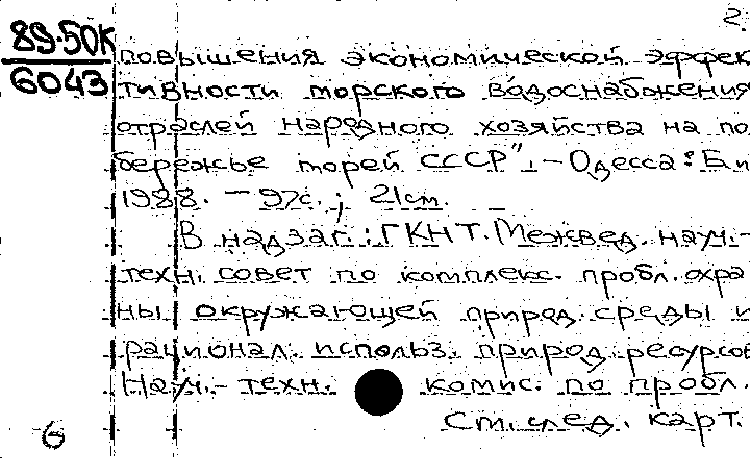 2.
89-50К
6043
повышения экономической эффек
тивности морского водоснабжения
отраслей народного хозяйства на по
бережье морей СССР". – Одесса: Б.и
1988. – 97с.; 21см.
В надзаг.: ГКНТ. Межвед. науч.-
техн. совет по комплекс. пробл. охра
ны окружающей природ. среды и
рационал. использ. природ. ресурсов
Науч.- техн. комис. по пробл.
См. след. карт.
6